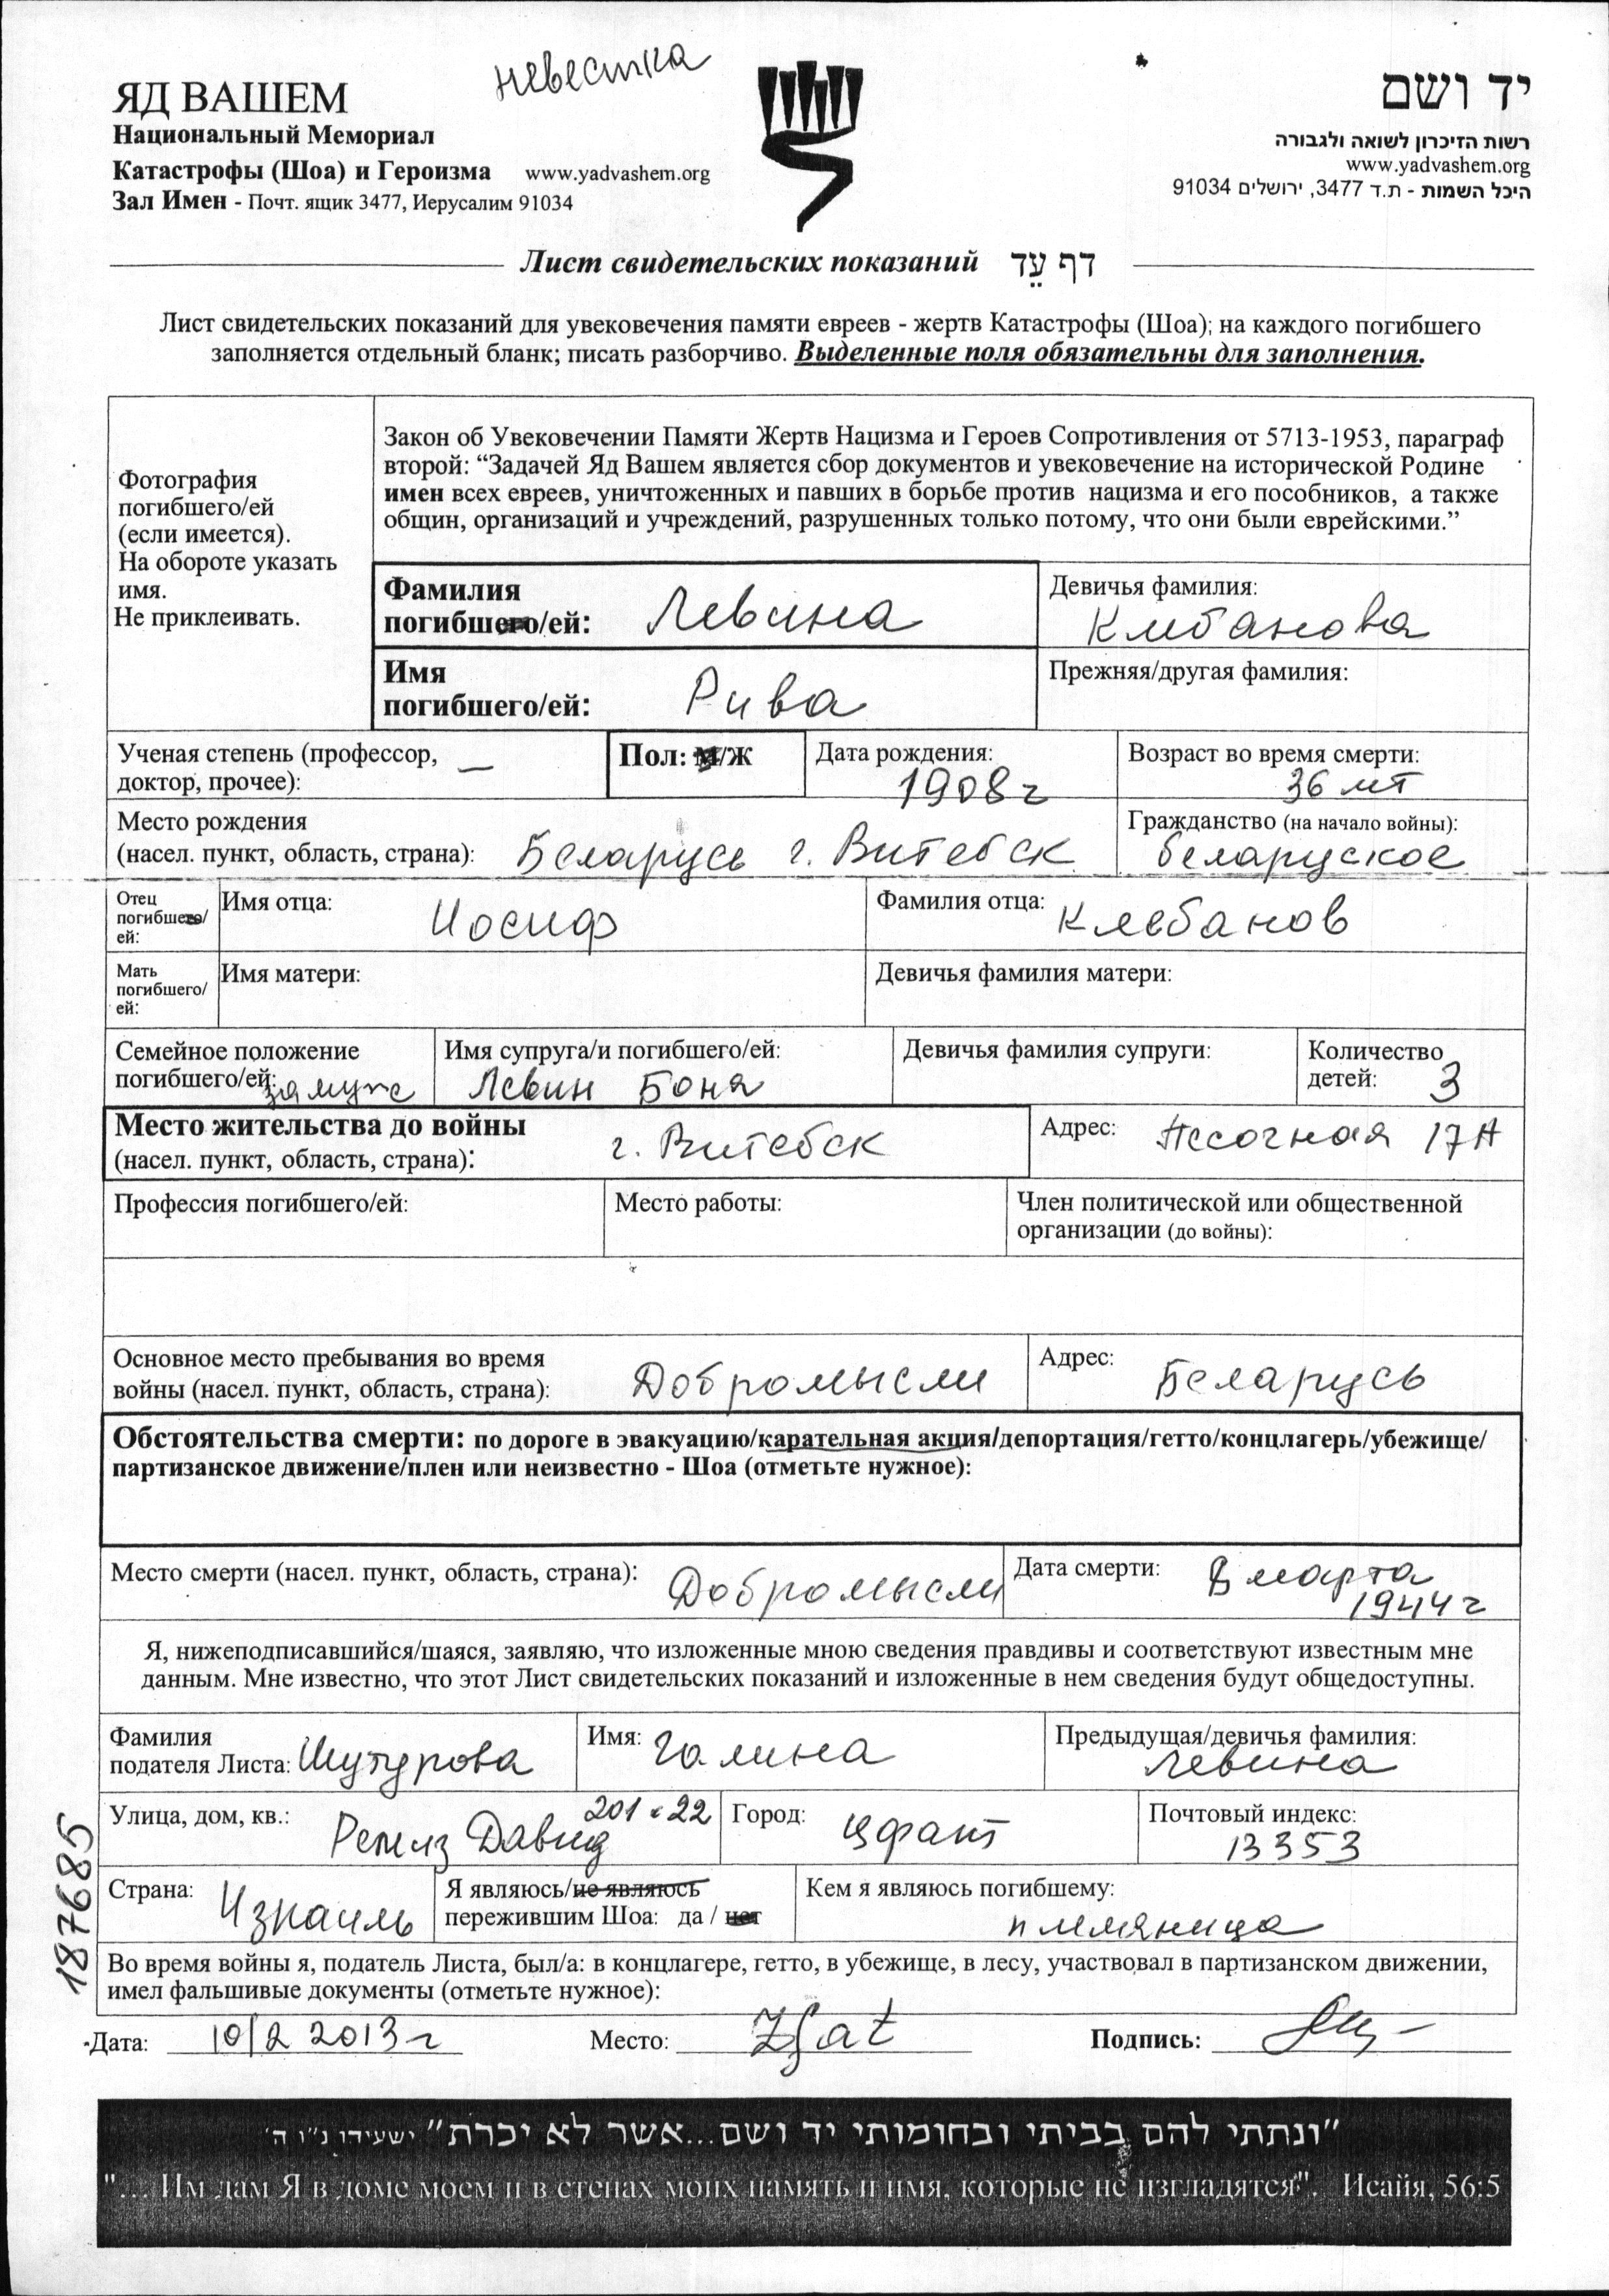 невестка
ЯД ВАШЕМ
Национальный Мемориал
Катастрофы (Шоа) и Героизма www.yadvashem.org
Зал Имен - Почт. ящик 3477, Иерусалим 91034
יד ושם
רשות הזיכרון לשואה ולגבורה
www.yadvashem.org
היכל השמות - ת.ד 3477, ירושלים 91034
Лист свидетельских показаний דף עֵד
Лист свидетельских показаний для увековечения памяти евреев - жертв Катастрофы (Шоа); на каждого погибшего
заполняется отдельный бланк; писать разборчиво. Выделенные поля обязательны для заполнения.
Фотография
погибшего/ей
(если имеется).
На обороте указать
имя.
Не приклеивать.
Закон об Увековечении Памяти Жертв Нацизма и Героев Сопротивления от 5713-1953, параграф
второй: “Задачей Яд Вашем является сбор документов и увековечение на исторической Родине
имен всех евреев, уничтоженных и павших в борьбе против нацизма и его пособников, а также
общин, организаций и учреждений, разрушенных только потому, что они были еврейскими.”
Фамилия
погибшего/ей: Левина
Девичья фамилия:
Клебанова
Имя
погибшего/ей: Рива
Прежняя/другая фамилия:
Ученая степень (профессор,
доктор, прочее): —
Пол: М/Ж
Дата рождения:
1908 г
Возраст во время смерти:
36 лет
Место рождения
(насел. пункт, область, страна): Беларусь г. Витебск
Гражданство (на начало войны):
беларуское
Отец
погибшего/
ей:
Имя отца: Иосиф
Фамилия отца: Клебанов
Мать
погибшего/
ей:
Имя матери:
Девичья фамилия матери:
Семейное положение
погибшего/ей: замуже
Имя супруга/и погибшего/ей:
Левин Боня
Девичья фамилия супруги:
Количество
детей: 3
Место жительства до войны
(насел. пункт, область, страна): г. Витебск
Адрес: Песочная 17А
Профессия погибшего/ей:
Место работы:
Член политической или общественной
организации (до войны):
Основное место пребывания во время
войны (насел. пункт, область, страна): Добромысли
Адрес: Беларусь
Обстоятельства смерти: по дороге в эвакуацию/карательная акция/депортация/гетто/концлагерь/убежище/
партизанское движение/плен или неизвестно - Шоа (отметьте нужное):
Место смерти (насел. пункт, область, страна): Добромысли
Дата смерти: 8 марта
1944 г
Я, нижеподписавшийся/шаяся, заявляю, что изложенные мною сведения правдивы и соответствуют известным мне
данным. Мне известно, что этот Лист свидетельских показаний и изложенные в нем сведения будут общедоступны.
Фамилия
подателя Листа: Шутурова
Имя: Галина
Предыдущая/девичья фамилия:
Левина
Улица, дом, кв.: 201 к 22
Ремез Давид
Город: Цфат
Почтовый индекс:
13353
Страна: Израиль
Я являюсь/не являюсь
пережившим Шоа: да / нет
Кем я являюсь погибшему:
племяница
Во время войны я, податель Листа, был/а: в концлагере, гетто, в убежище, в лесу, участвовал в партизанском движении,
имел фальшивые документы (отметьте нужное):
Дата: 10/2 2013 г Место: Zfat Подпись:
187685
"ונתתי להם בביתי ובחומותי יד ושם...אשר לא יכרת" ישעיהו נ"ו ה'
"... Им дам Я в доме моем и в стенах моих память и имя, которые не изгладятся". Исайя, 56:5